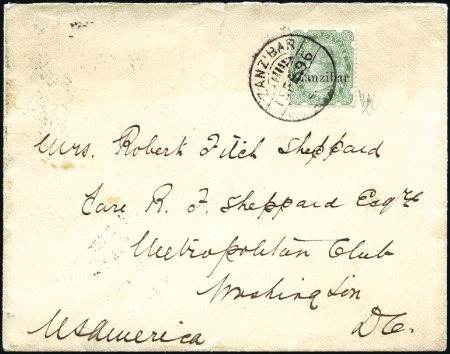 ZANZIBAR
96
Zanzibar
Mrs. Robert Fitch Sheppard
Care R. F. Sheppard Esqre
Metropolitan Club
Washington
D.C.
U.S. America